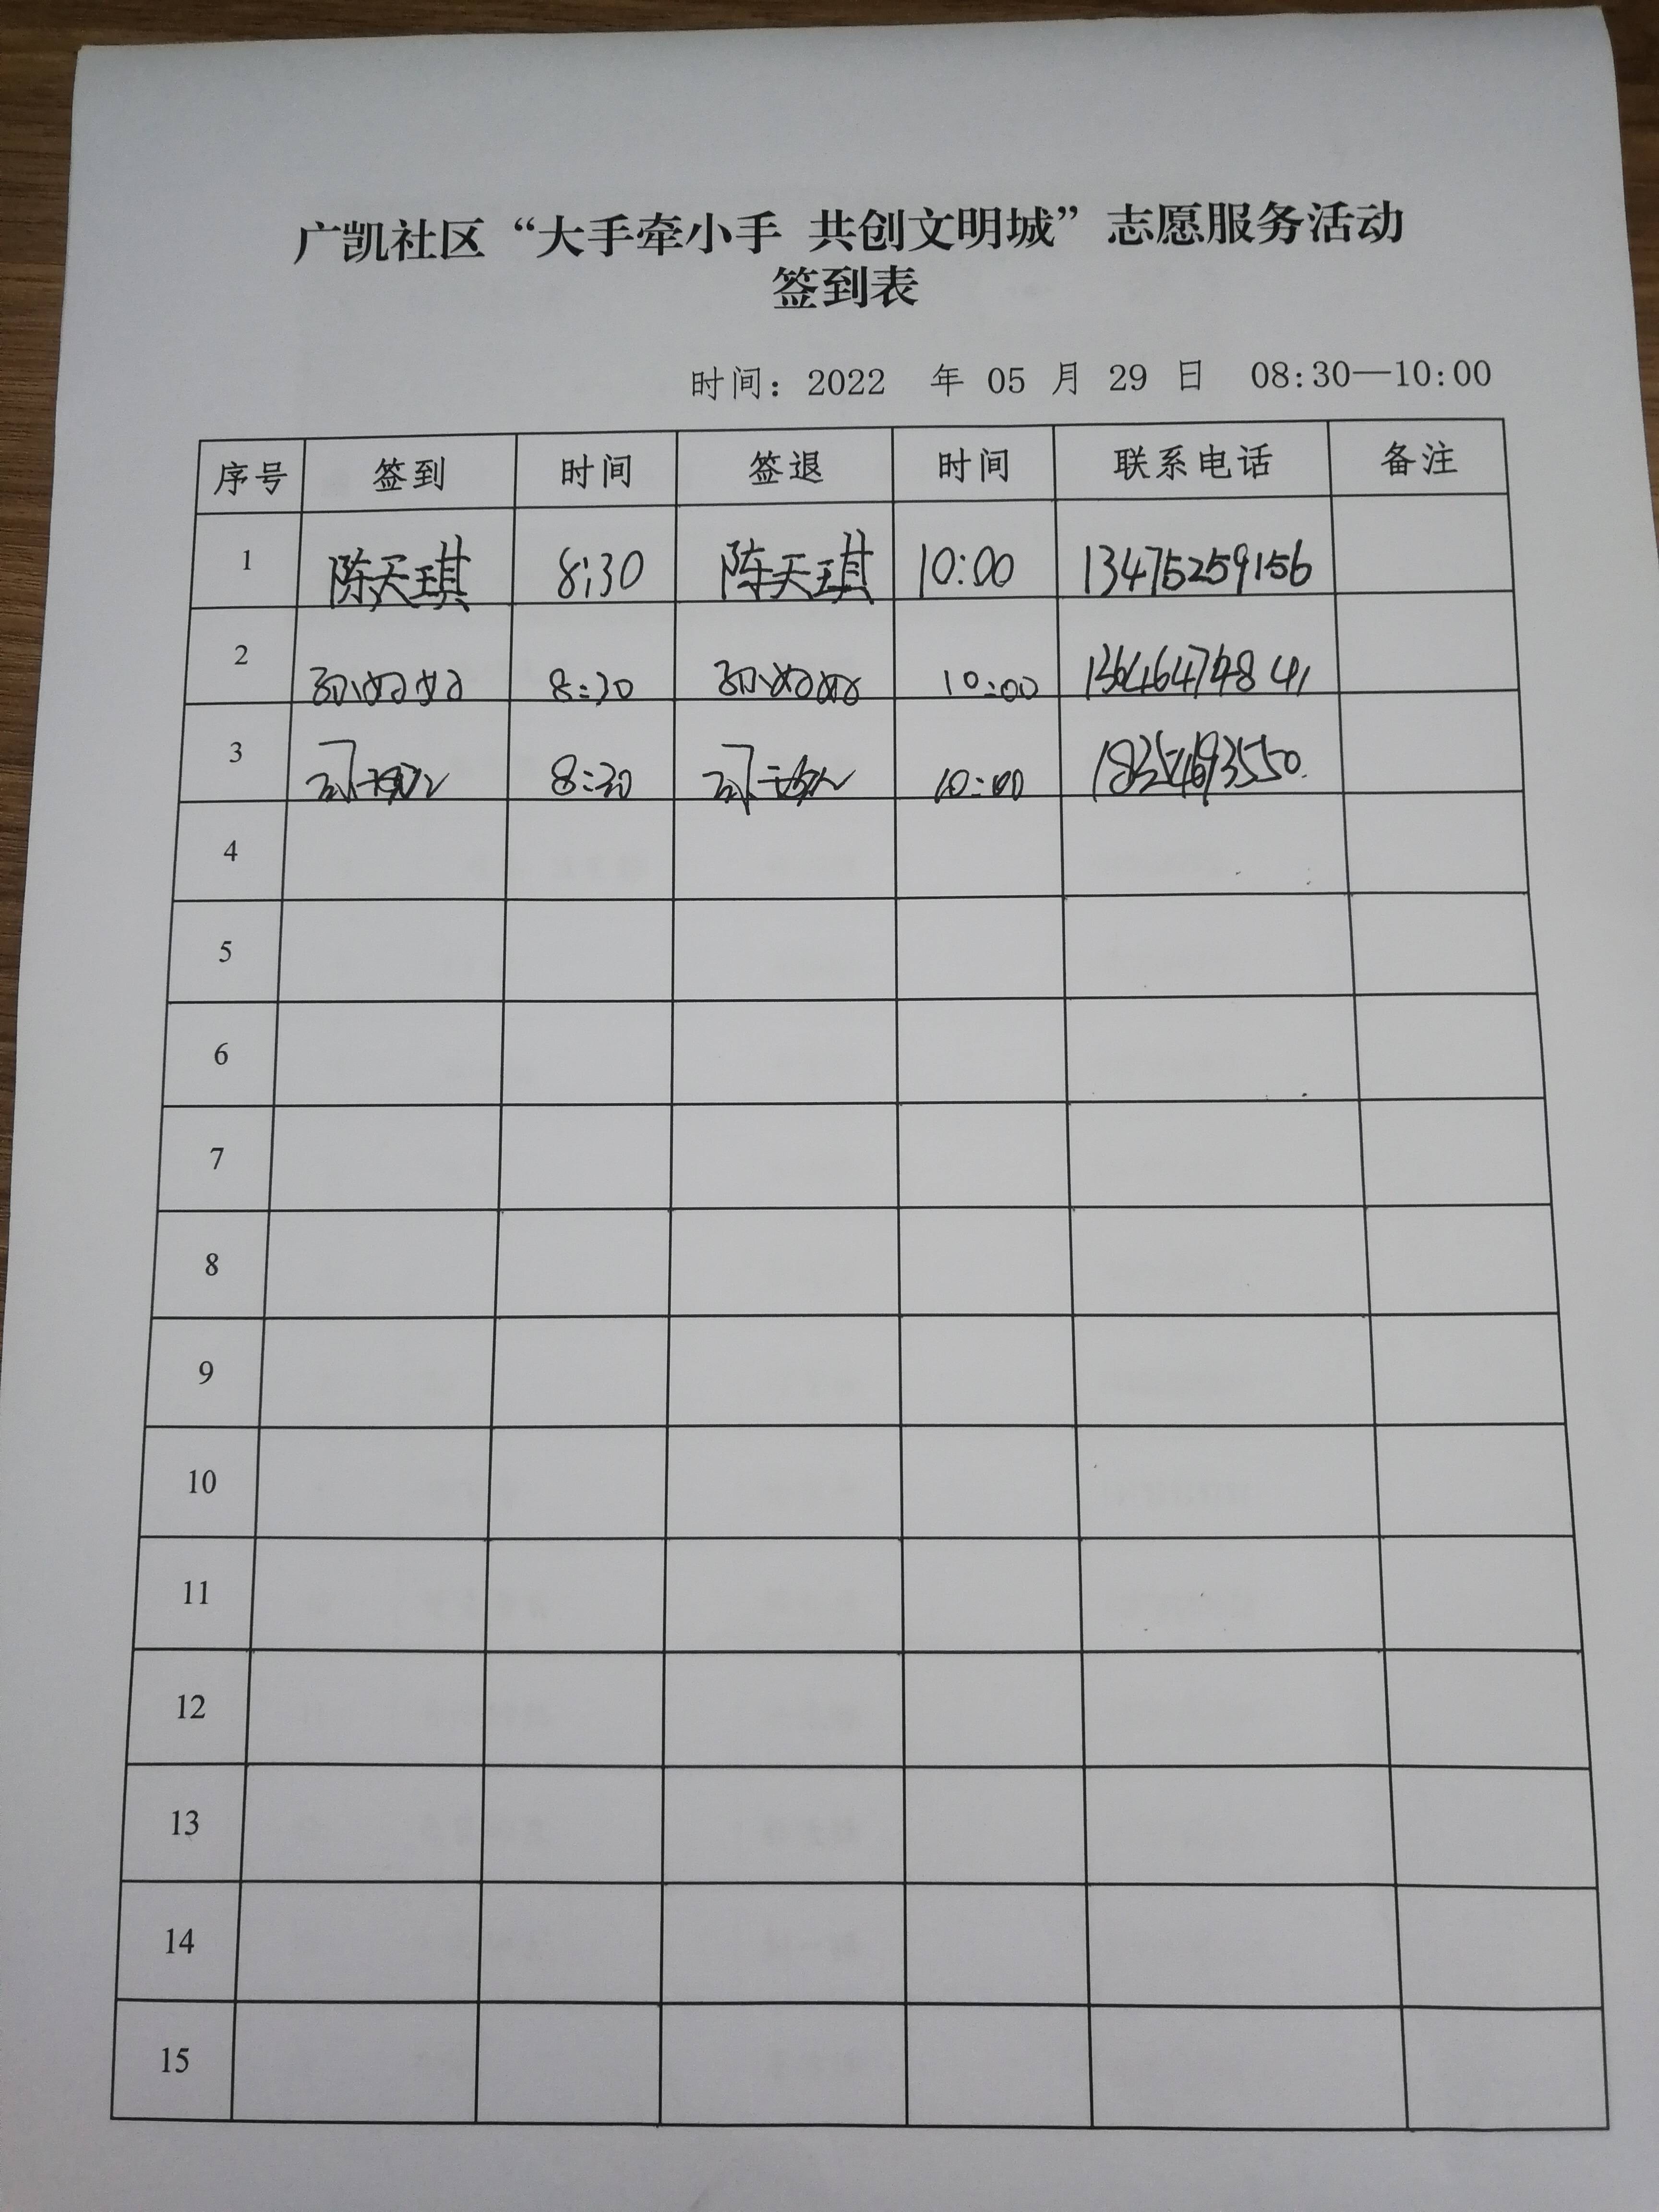 广凯社区“大手牵小手 共创文明城”志愿服务活动
签到表
时间：2022 年 05 月 29 日 08:30—10:00
序号 签到 时间 签退 时间 联系电话 备注
1 陈天琪 8:30 陈天琪 10:00 13475259156
2 8:30 10:00
3 8:30 10:00 18354693550
4
5
6
7
8
9
10
11
12
13
14
15